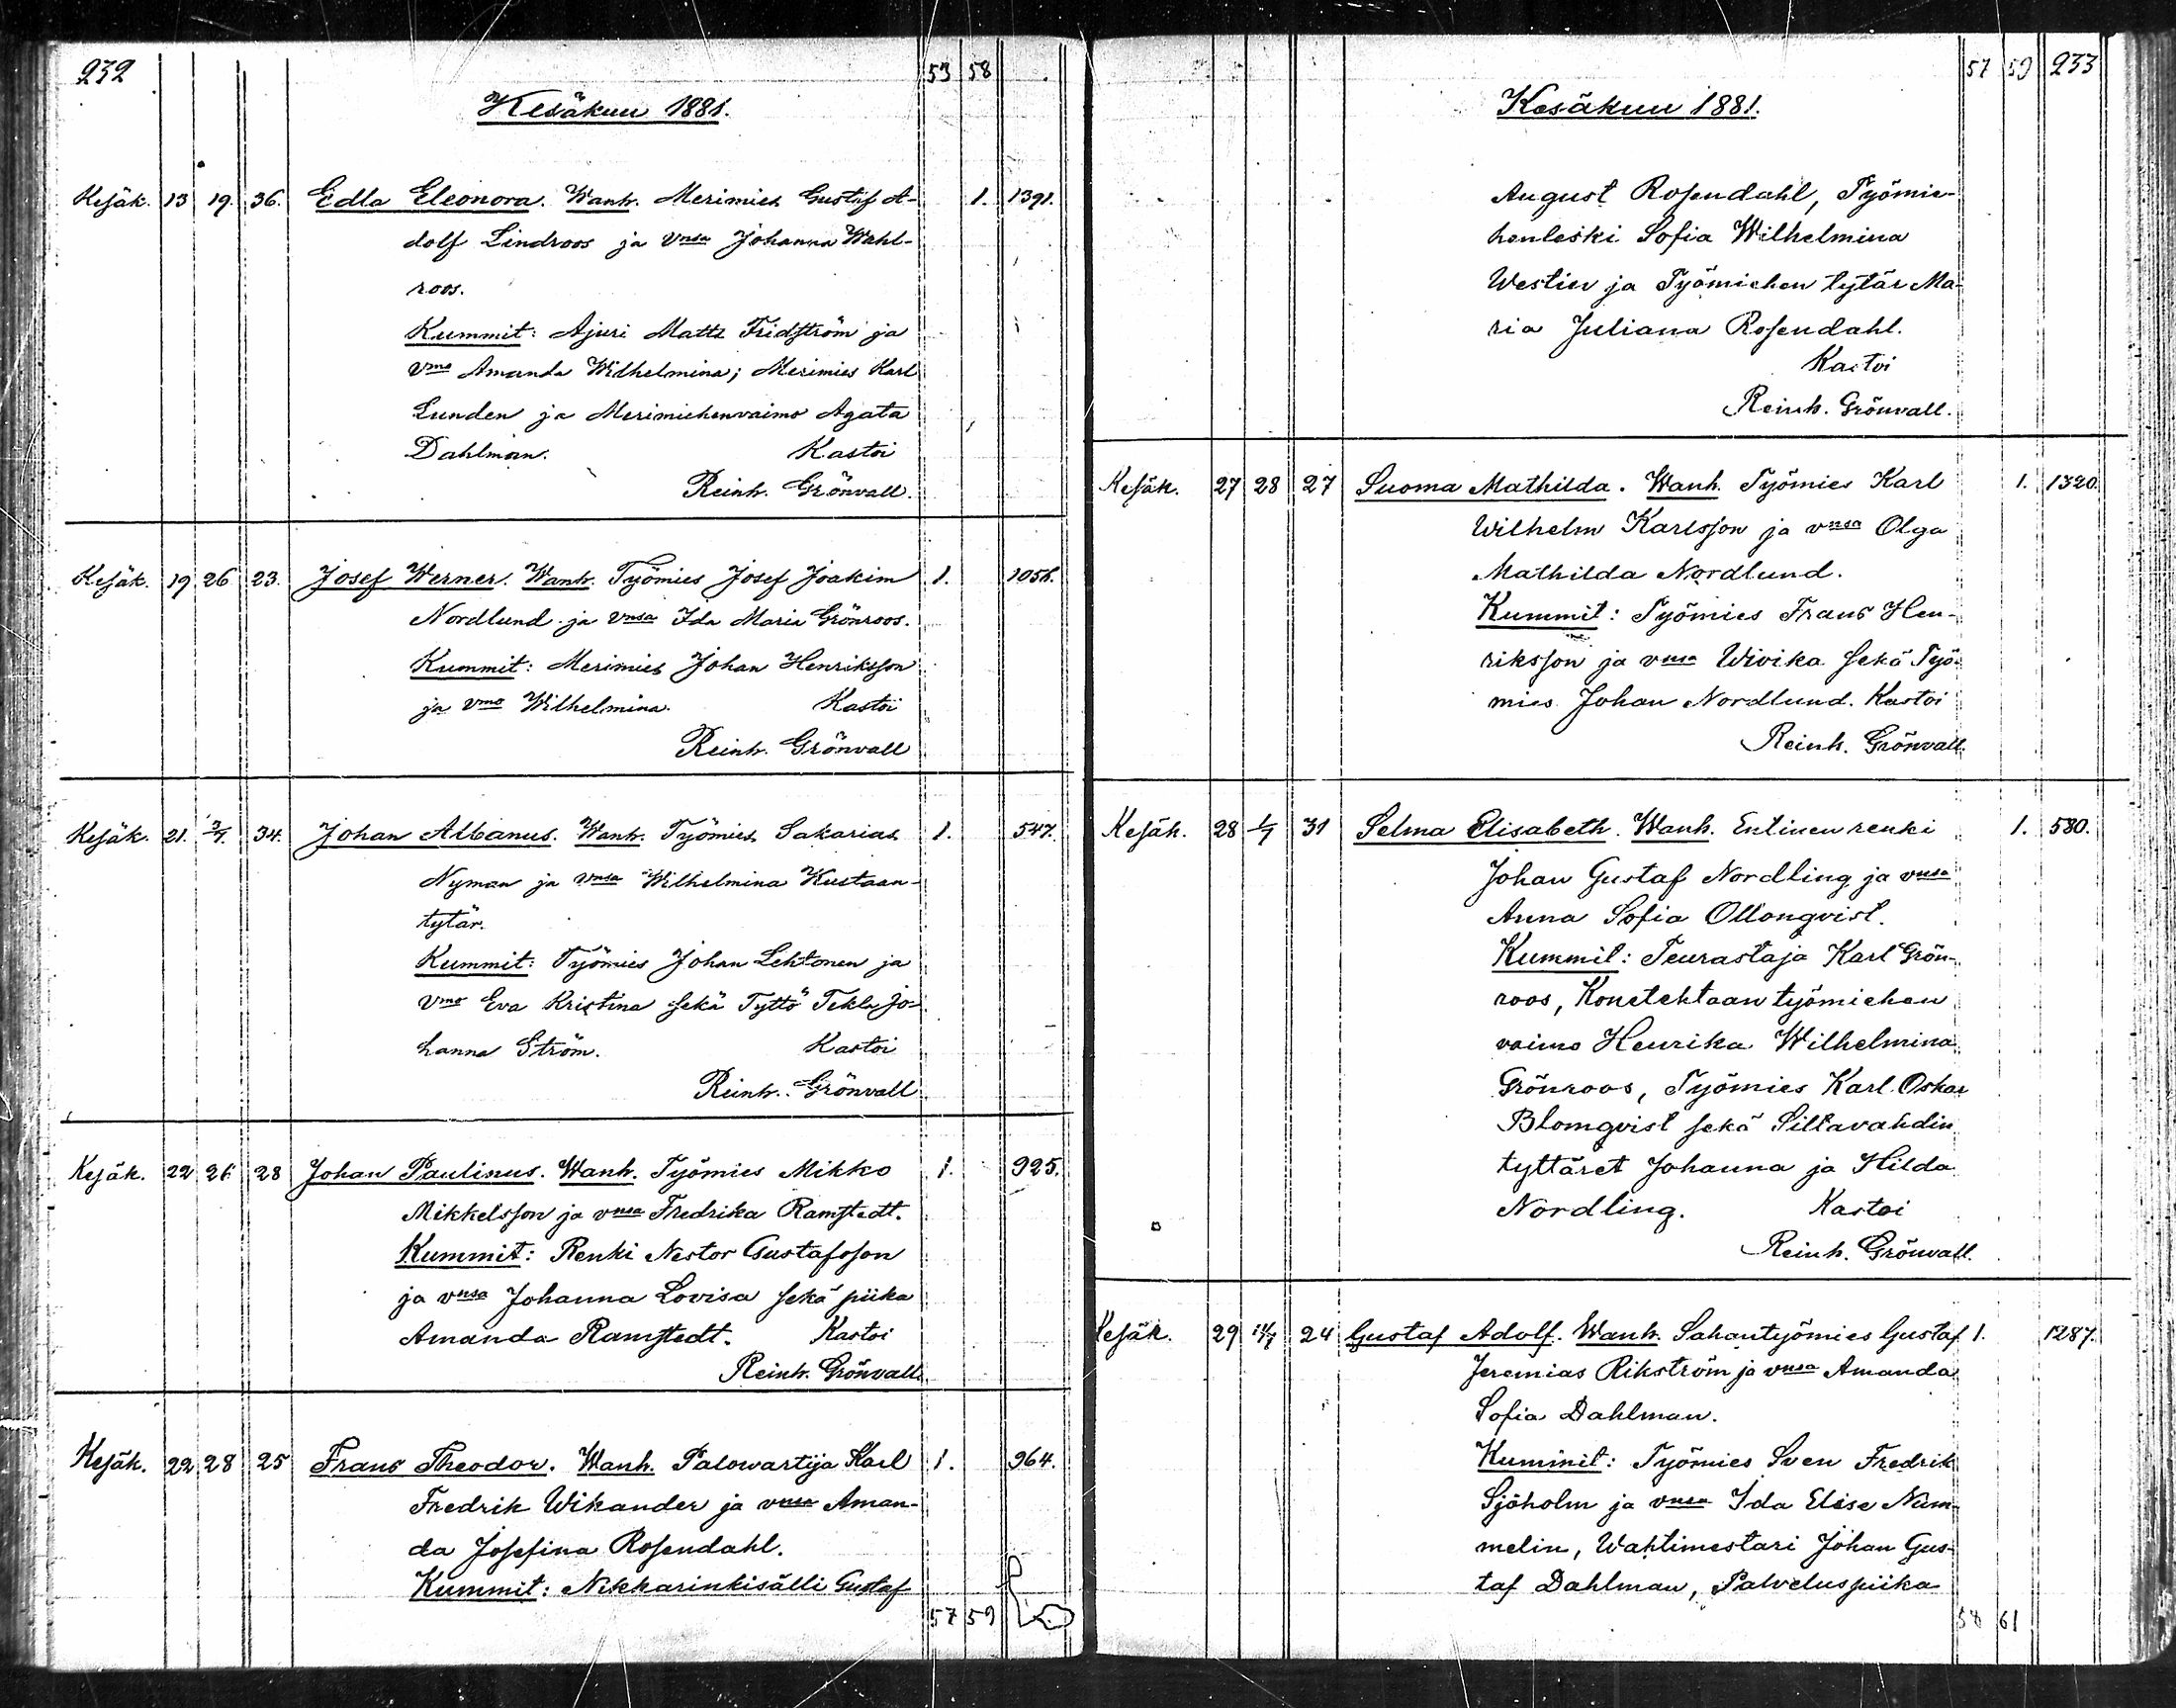 232 53 58
Kesäkuu 1881.
Kesäk. 13 19. 36. Edla Eleonora. Wanh. Merimies Gustaf A- 1. 1391.
dolf Lindroos ja vnsa Johanna Wahl-
roos.
Kummit: Ajuri Matts Fridström ja
vmo Amanda Wilhelmina; Merimies Karl
Lunden ja Merimiehenvaimo Agata
Dahlman. Kastoi
Reinh. Grönvall.
Kesäk. 19 26 23. Josef Werner. Wanh. Työmies Josef Joakim 1.
Nordlund ja vnsa Ida Maria Grönroos.
Kummit: Merimies Johan Henriksson
ja vmo Wilhelmina. Kastoi
Reinh. Grönvall
Kesäk. 21. 3/7. 34. Johan Albanus. Wanh. Työmies Sakarias 1. 547.
Nyman ja vnsa Wilhelmina Kustaan-
tytär.
Kummit: Työmies Johan Lehtonen ja
vmo Eva Kristina sekä Tyttö Tekla Jo-
hanna Ström. Kastoi
Reinh. Grönvall
Kesäk. 22 26 28 Johan Paulinus. Wanh. Työmies Mikko 1. 925.
Mikkelsson ja vnsa Fredrika Ramstedt.
Kummit: Renki Nestor Gustafsson
ja vnsa Johanna Lovisa sekä piika
Amanda Ramstedt. Kastoi
Reinh. Grönvall.
Kesäk. 22 28 25 Frans Theodor. Wanh. Palowartija Karl 1. 964.
Fredrik Wikander ja vnsa Aman-
da Josefina Rosendahl.
Kummit: Nikkarinkisälli Gustaf
57 59
57 59 233
Kesäkuu 1881.
August Rosendahl, Työmie-
henleski Sofia Wilhelmina
Westin ja Työmiehen tytär Ma-
ria Juliana Rosendahl.
Kastoi
Reinh. Grönvall.
Kesäk. 27 28 27 Suoma Mathilda. Wanh. Työmies Karl 1. 1320.
Wilhelm Karlsson ja vnsa Olga
Mathilda Nordlund.
Kummit: Työmies Frans Hen-
riksson ja vnsa Wivika sekä Työ-
mies Johan Nordlund. Kastoi
Reinh. Grönvall.
Kesäk. 28 1/7 31 Selma Elisabeth. Wanh. Entinen renki 1. 580.
Johan Gustaf Nordling ja vnsa
Anna Sofia Ollonqvist.
Kummit: Teurastaja Karl Grön-
roos, Konetehtaan työmiehen
vaimo Henrika Wilhelmina
Grönroos, Työmies Karl Oskar
Blomqvist sekä Siltavahdin
tyttäret Johanna ja Hilda
Nordling. Kastoi
Reinh. Grönvall.
Kesäk. 29 24 Gustaf Adolf. Wanh. Sahantyömies Gustaf 1. 1287.
Jeremias Rikström ja vnsa Amanda
Sofia Dahlman.
Kummit: Työmies Sven Fredrik
Sjöholm ja vnsa Ida Elise Num-
melin, Wahtimestari Johan Gus-
taf Dahlman, Palveluspiika
58 61